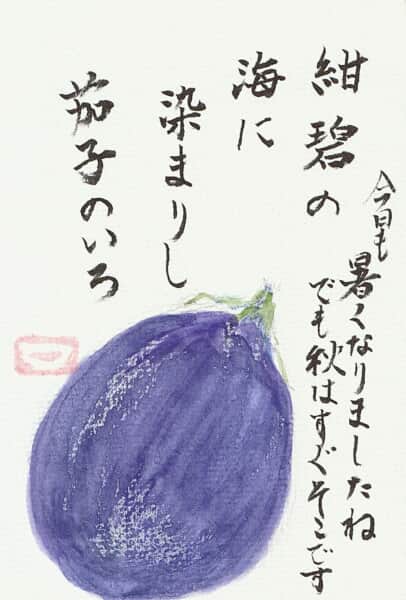 紺碧の
海に
染まりし
茄子のいろ
今日も
暑くなりましたね
でも秋はすぐそこです